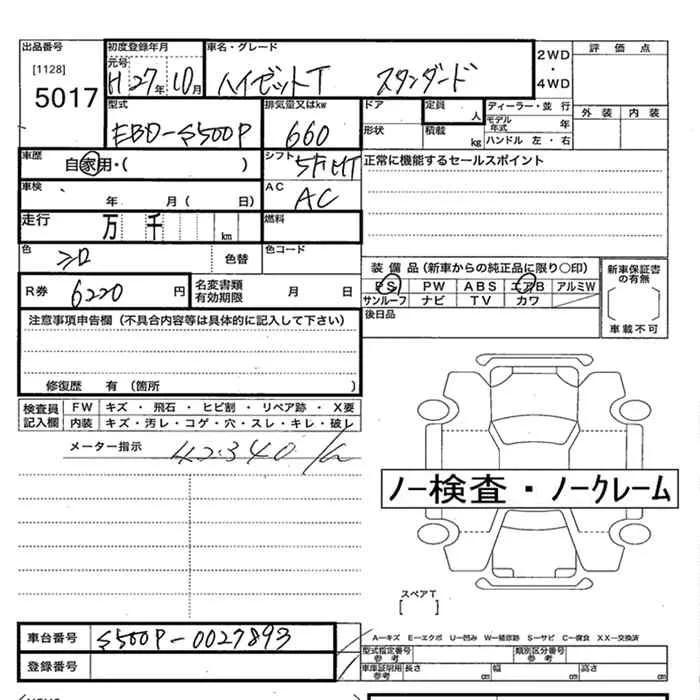 出品番号 初度登録年月 車名・グレード 2WD・4WD 評価点
[1128] 元号
5017 H 27年 10月 ハイゼットT スタンダード
型式 排気量又はkw ドア 定員 人 ディーラー・並行 外装 内装
EBD-S500P 660 形状 積載 kg モデル年式 年
ハンドル 左・右
車歴 自家用・( ) シフト 5FMT 正常に機能するセールスポイント
車検 年 月( 日) AC AC
走行 万 千 km 燃料
色 シロ 色替 色コード
装備品(新車からの純正品に限り○印) 新車保証書の有無
R券 6220 円 名変書類有効期限 月 日 PS PW ABS エアB アルミW
サンルーフ ナビ TV カワ
注意事項申告欄(不具合内容等は具体的に記入して下さい) 後日品 車載不可
修復歴 有(箇所 )
検査員記入欄 FW キズ・飛石・ヒビ割・リペア跡・X要
内装 キズ・汚レ・コゲ・穴・スレ・キレ・破レ
メーター指示 42340
ノー検査・ノークレーム
スペアT
[ ]
車台番号 S500P-0027893 A-キズ E-エクボ U-凹み W-補修跡 S-サビ C-腐食 XX-交換済
型式指定番号 参考 類別区分番号 参考
登録番号 車庫証明用 参考 長さ cm 幅 cm 高さ cm